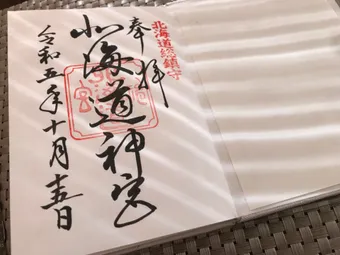 北海道総鎮守
奉拝
北海道神宮
令和五年十月十五日